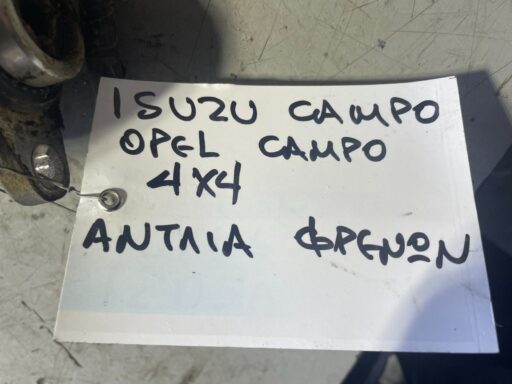 ISUZU CAMPO
OPEL CAMPO
4X4
ΑΝΤΛΙΑ ΦΡΕΝΩΝ